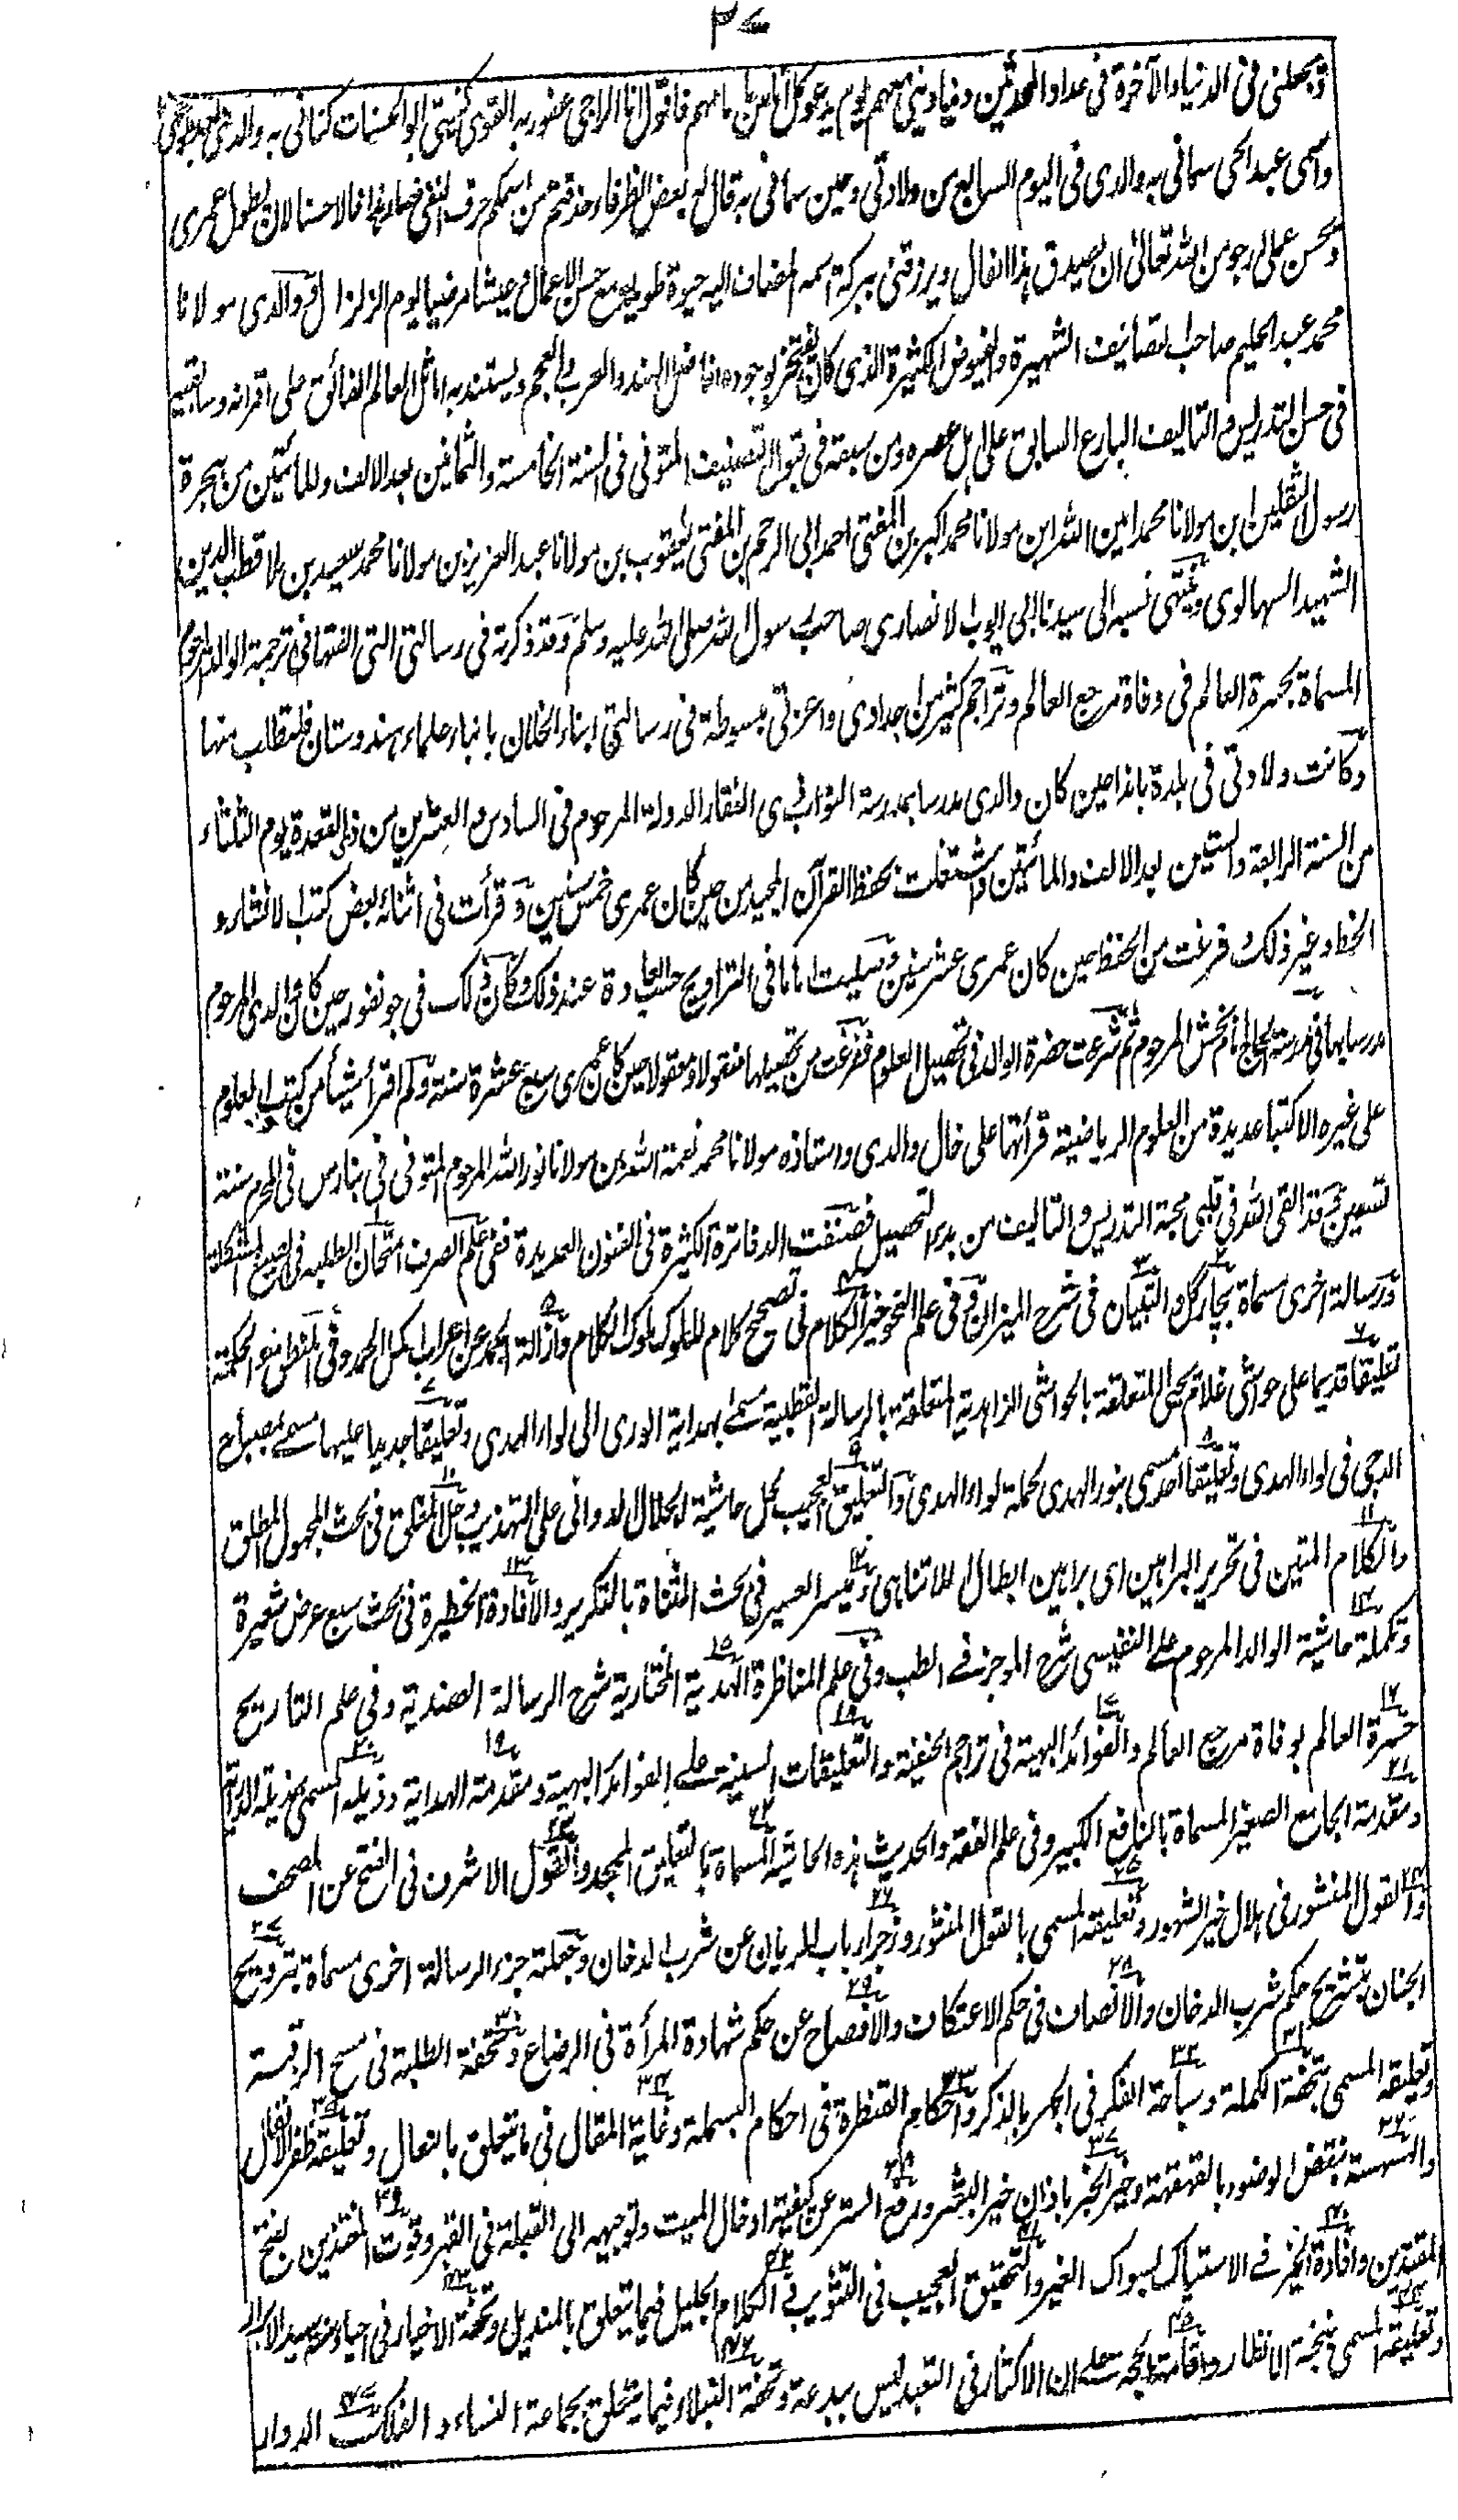 ٢٧
ويجعلني في الدنيا والآخرة في عداد المحدثين وينادينى معهم يوم يدعو كل اناس بامامهم فاقول انا الراجي عفو ربه القوى كنيتى ابو الحسنات كنانى به والدى
واسمى عبد الحى سمانى به والدى فى اليوم السابع من ولادتى وحين سمانى به قال له بعض الظرفاء حذفتم من اسمكم حرف النفى فصار هذا فالا حسنا لان يطول عمرى
ويحسن عملى ارجو من الله تعالى ان يصدق هذا الفال ويرزقنى ببركة اسمه المضاف اليه حيوة طويلة مع حسن الاعمال وعيشا مرضيا يوم الزلزال ووالدى مولانا
محمد عبد الحليم صاحب التصانيف الشهيرة والفيوض الكثيرة الذى كان يفتخر بوجوده افاضل الهند والعرب والعجم ويستند به اماثل العالم الفائق على اقرانه وسابقيه
فى حسن التدريس والتاليف البارع السابق على اهل عصره ومن سبقه فى قبول التصنيف المتوفى فى السنة الخامسة والثمانين بعد الالف والمائتين من هجرة
رسول الثقلين ابن مولانا محمد امين الله ابن مولانا محمد اكبر بن المفتى احمد ابى الرحم بن المفتى يعقوب بن مولانا عبد العزيز بن مولانا محمد سعيد بن ملا قطب الدين
الشهيد السهالوى وينتهى نسبه الى سيدنا ابى ايوب الانصارى صاحب رسول الله صلى الله عليه وسلم وقد ذكرته فى رسالتى التى الفتها فى ترجمة الوالد المرحوم
المسماة بحسرة العالم فى وفاة مرجع العالم وتراجم كثير من اجدادى واعزتى مبسوطة فى رسالتى انباء الخلان بانباء علماء هندوستان فلتطلب منها
وكانت ولادتى فى بلدة باندا حين كان والدى مدرسا بمدرسة النواب ذى الفقار الدولة المرحوم فى السادس والعشرين من ذى القعدة يوم الثلثاء
من السنة الرابعة والستين بعد الالف والمائتين واشتغلت بحفظ القرآن المجيد من حين كان عمرى خمس سنين وقرأت فى اثنائه بعض كتب الانشاء و
الخط وغير ذلك وفرغت من الحفظ حين كان عمرى عشر سنين وصليت اماما فى التراويح حسب العادة عند ذلك وكان ذلك فى جونفور حين كان والدى المرحوم
مدرسا بها فى مدرسة الحاج امام بخش المرحوم ثم شرعت حضرة الوالد فى تحصيل العلوم ففرغت من تحصيلها منقولا ومعقولا حين كان عمرى سبع عشرة سنة ولم اقرأ شيئا من كتب العلوم
على غيره الا كتبا عديدة من العلوم الرياضية قرأتها على خال والدى واستاذه مولانا محمد نعمة الله بن مولانا نور الله المرحوم المتوفى فى بنارس فى المحرم سنة
تسعين وقد القى الله فى قلبى محبة التدريس والتاليف من بدء التحصيل فصنفت الدفاترة الكثيرة فى الفنون العديدة ففى علم الصرف امتحان الطلبه فى الصيغ المشكلة
ورسالة اخرى مسماة بچار گل والتبيان فى شرح الميزان وفى علم النحو خير الكلام فى تصحيح كلام الملوك ملوك الكلام وازالة الجمد عن اعراب اكمل الحمد وفى المنطق والحكمة
تعليقا قديما على حواشى غلام يحيى المتعلقة بالحواشى الزاهدية المتعلقة بالرسالة القطبية مسمى بهداية الورى الى لواء الهدى وتعليقا جديدا عليها مسمى بمصباح
الدجى فى لواء الهدى وتعليقا آخر مسمى بنور الهدى لحملة لواء الهدى والتعليق العجيب لحل حاشية الجلال الدوانى على التهذيب وحل المغلق فى بحث المجهول المطلق
والكلام المتين فى تحرير البراهين اى براهين ابطال اللاتناهى وميسر العسير فى بحث المثناة بالتكرير والافادة الخطيرة فى بحث سبع عرض شعيرة
وتكملة حاشية الوالد المرحوم على النفيسى شرح الموجز فى الطب وفى علم المناظرة الهدية المختارية شرح الرسالة العضدية وفى علم التاريخ
حسرة العالم بوفاة مرجع العالم والفوائد البهية فى تراجم الحنفية والتعليقات السنية على الفوائد البهية ومقدمة الهداية وذيله المسمى بمذيلة الدراية
ومقدمة الجامع الصغير المسماة بالنافع الكبير وفى علم الفقه والحديث هذه الحاشية المسماة بالتعليق الممجد والقول الاشرف فى الفتح عن المصحف
والقول المنشور فى هلال خير الشهور وتعليقه المسمى بالقول المنثور وزجر ارباب الريان عن شرب الدخان وجعلته جزء الرسالة اخرى مسماة بترويح
الجنان بتشريح حكم شرب الدخان والانصاف فى حكم الاعتكاف والافصاح عن حكم شهادة المرأة فى الرضاع وتحفة الطلبة فى مسح الرقبة
وتعليقه المسمى بتحفة الكملة وسباحة الفكر فى الجهر بالذكر واحكام القنطرة فى احكام البسملة وغاية المقال فى ما يتعلق بالنعال وتعليقه ظفر الانفال
والهسهسة بنقض الوضوء بالقهقهة وخير الخبر باذان خير البشر ورفع الستر عن كيفية ادخال الميت وتوجيهه الى القبلة فى القبر وقوت المغتذين بفتح
المقتدين وافادة الخير فى الاستياك بسواك الغير والتحقيق العجيب فى التثويب والكلام الجليل فيما يتعلق بالمنديل وتحفة الاخيار فى احياء سنة سيد الابرار
وتعليقه المسمى بنخبة الانظار واقامة الحجة على ان الاكثار فى التعبد ليس ببدعة وتحفة النبلاء فيما يتعلق بجماعة النساء والفلك الدوار